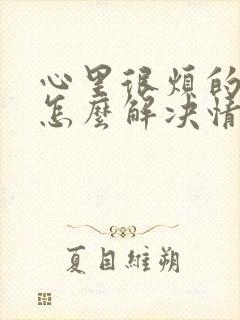 心里很烦的
怎麼解决情
夏目維朔